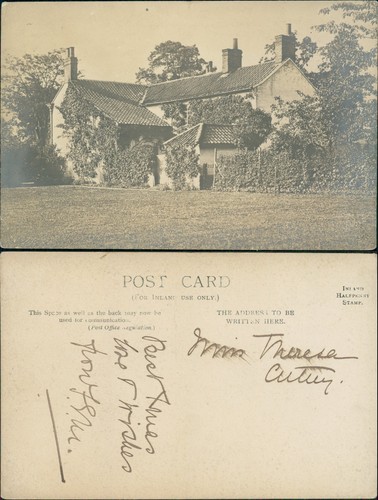 POST CARD
(FOR INLAND USE ONLY.)
INLAND
HALFPENNY
STAMP.
This Space as well as the back may now be
used for communication.
(Post Office Regulation.)
THE ADDRESS TO BE
WRITTEN HERE.
Best
Wishes
from
Theresa